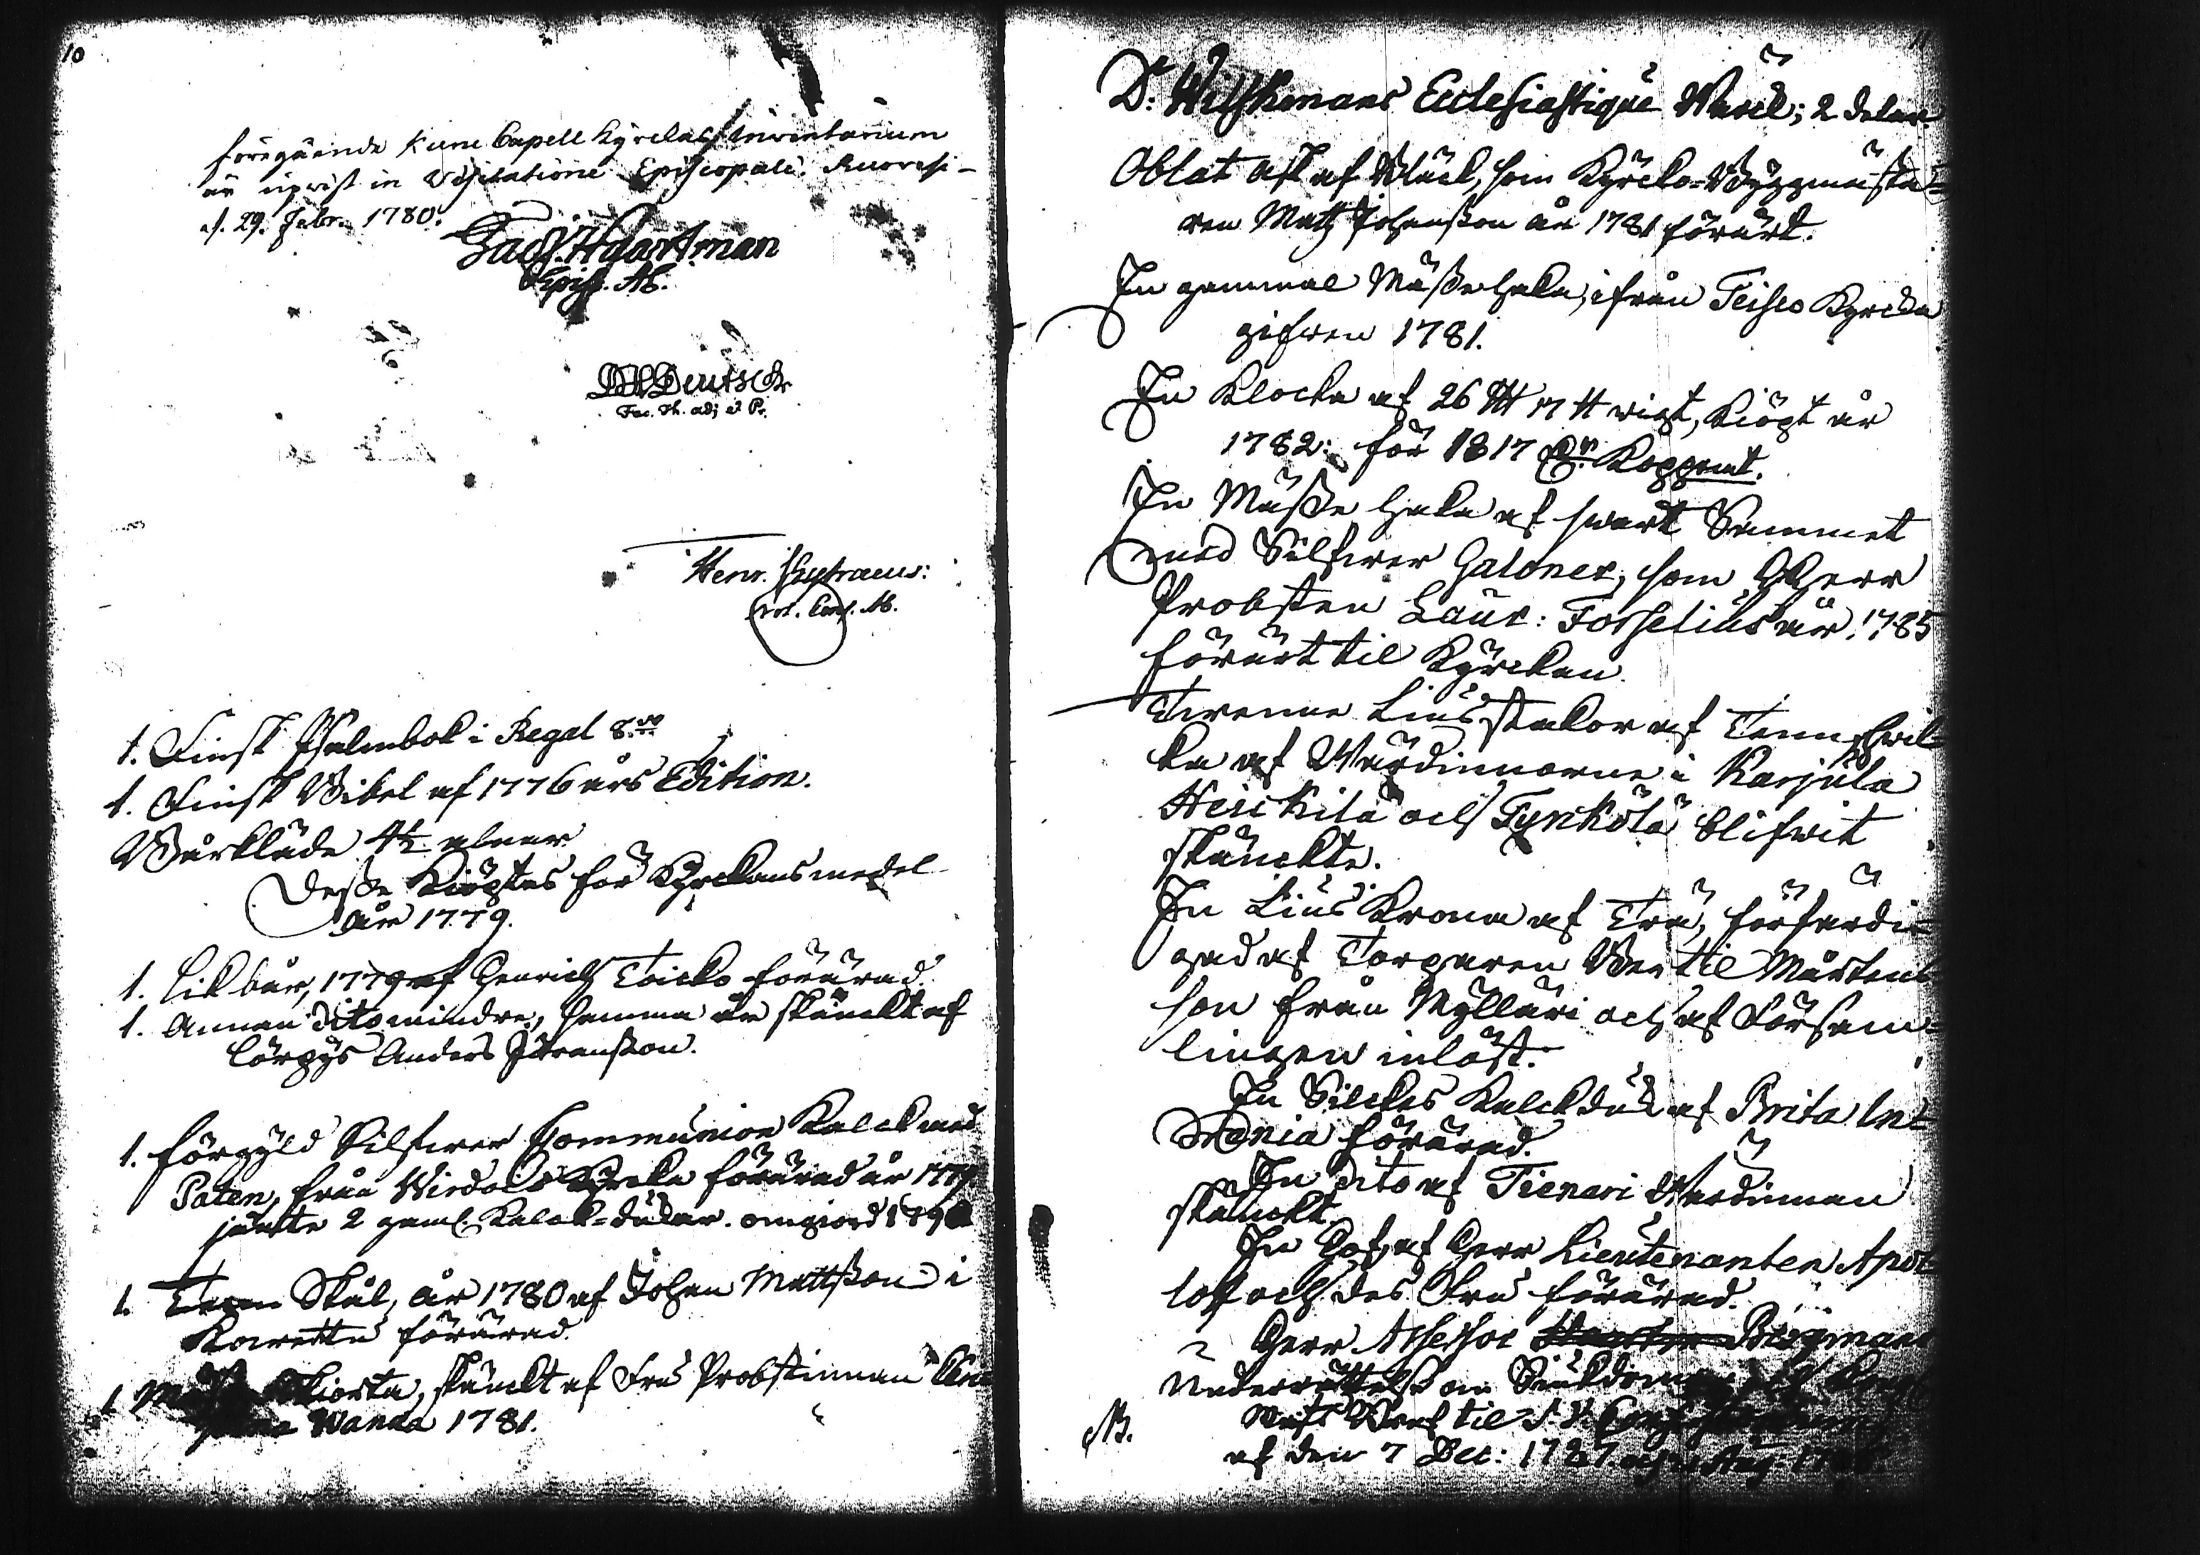 10
föregående Kuru Capell Kyrckas Inventarium
är upvist in Visitatione Episcopali. Ruovesi
d. 29. Febr. 1780.
Jac. Haartman
Episc. Ab.
Deutsch
Fac. Th. adj. et P.
Henr.
Not. Cons. Ab.
1. Finsk Psalmbok i Regal 8:vo
1. Finsk Bibel af 1776 års Edition.
Bårkläde 4½ alnar
Desse Kiöptes för Kyrckans medel
år 1779.
1. Likbår, 1779 af Henrich Toicko förärad.
1. Annan dito mindre, samma år skänckt af
Anders Göransson.
1. förgyld Silfwer Communion Kalck med
Paten, från Wirdois Kyrcka förärad år 1779
jämte 2 gaml. Kalck-dukar. omgiord 179
1. Skål, år 1780 af Johan Mattsson i
förärad
1 skiorta, skänckt af Fru Probstinnan
Wanda 1781.
11
D: Wilskmans Ecclesiastique Werck; 2 delar.
Oblat ask af Bläck, som Kyrcko-Byggmästa-
ren Math Johansson år 1781 förärt.
En gammal Mässe hake, ifrån Teisco Kyrcka
gifwen 1781.
En Klocka af 26 L℔ 17 ℔ wigt, Kiöpt år
1782: för 1817 Dr Koppmt.
En Mässe hake af swart Sammet
med Silfwer Galoner, som Herr
Probsten Laur: Forselius år 1785
förärt til Kyrckan.
Twenne Liusstakar af Tenn, hwil-
ka af Wärdinnorne i Karjula
Heickilä och Tynkölä blifwit
skänckte.
En Lius Krona af Trä, förfärdi-
gad af Torparen Bertil Mårtens
son från Mylläri och af Försam-
lingen inlöst.
En Silckes Kalckduk af Brita In-
Mania förärad.
En dito af Tienari Wärdinnan
skänckt.
En af Herr Lieutenanten Apol
loff och des Fru förärad.
2 Herr Assessor Bergmans
Underrättelse om Siukdomar
NB. Bref til
af den 7 Dec: 1787 och Aug. 17